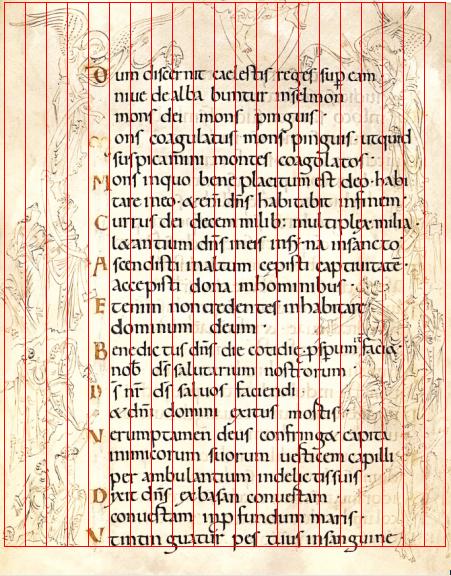 Dum discernit caelestis reges sup eam
niue dealbabuntur inselmon
mons dei mons pinguis
Mons coagulatus mons pinguis · utquid
suspicamini montes coagolatos ·
Mons inquo bene placitum est deo · habi
tare ineo · &enim dñs habitabit infinem ·
Currus dei decem milib: multiplex · milia ·
l&antium dñs ineis insyna insancto
Ascendisti inaltum cepisti captiuitatē ·
accepisti dona inhominibus ·
Etenim noncredentes inhabitare
dominum deum ·
Benedictus dñs die cotidie · faci&
nob ds salutarium nostrorum ·
Ds nr ds saluos faciendi
&dni domini exitus mortis ·
Verumptamen deus confring& capita
inimicorum suorum uerticem capilli
perambulantium indelictis suis ·
Dixit dñs exbasan conuertam ·
conuertam inpfundum maris ·
Vt intinguatur pes tuus insanguine ·